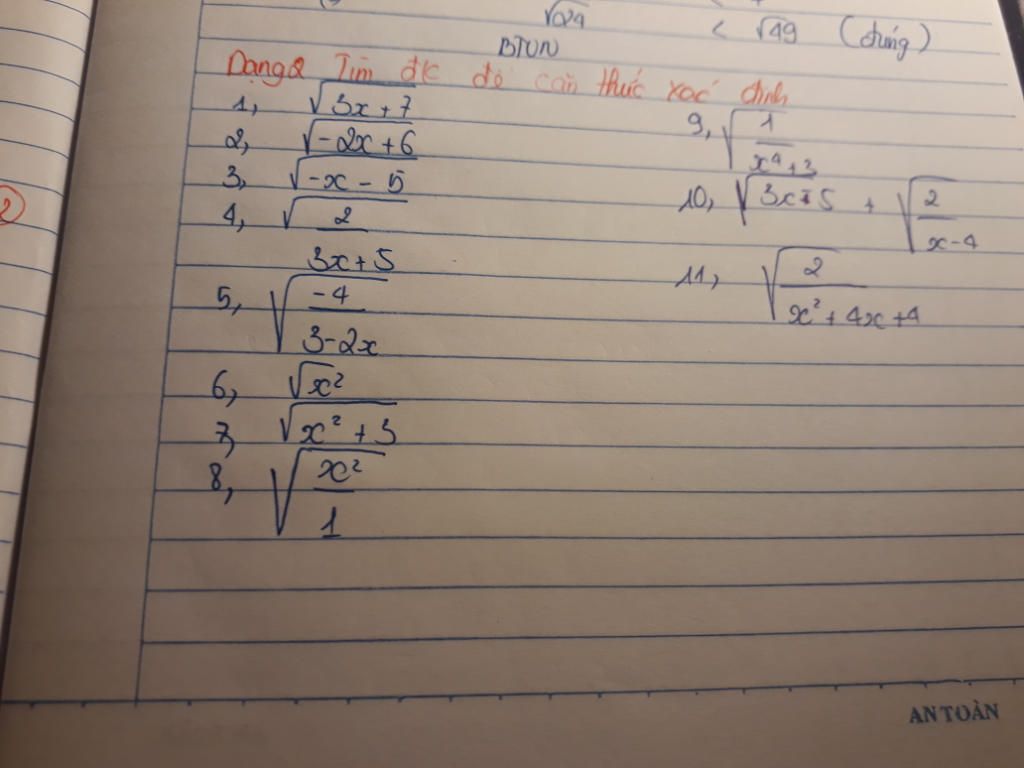 √49 (đúng)
<
BTVN
Dạng 2 Tìm đk để căn thức xác định
1, √3x+7
2, √-2x+6
3, √-x-5
4, √2/3x+5
5, √-4/3-2x
6, √x²
7, √x²+3
8, √x²/1
9, √1/x⁴+3
10, √3x-5 + √2/x-4
11, √2/x²+4x+4
2
AN TOÀN